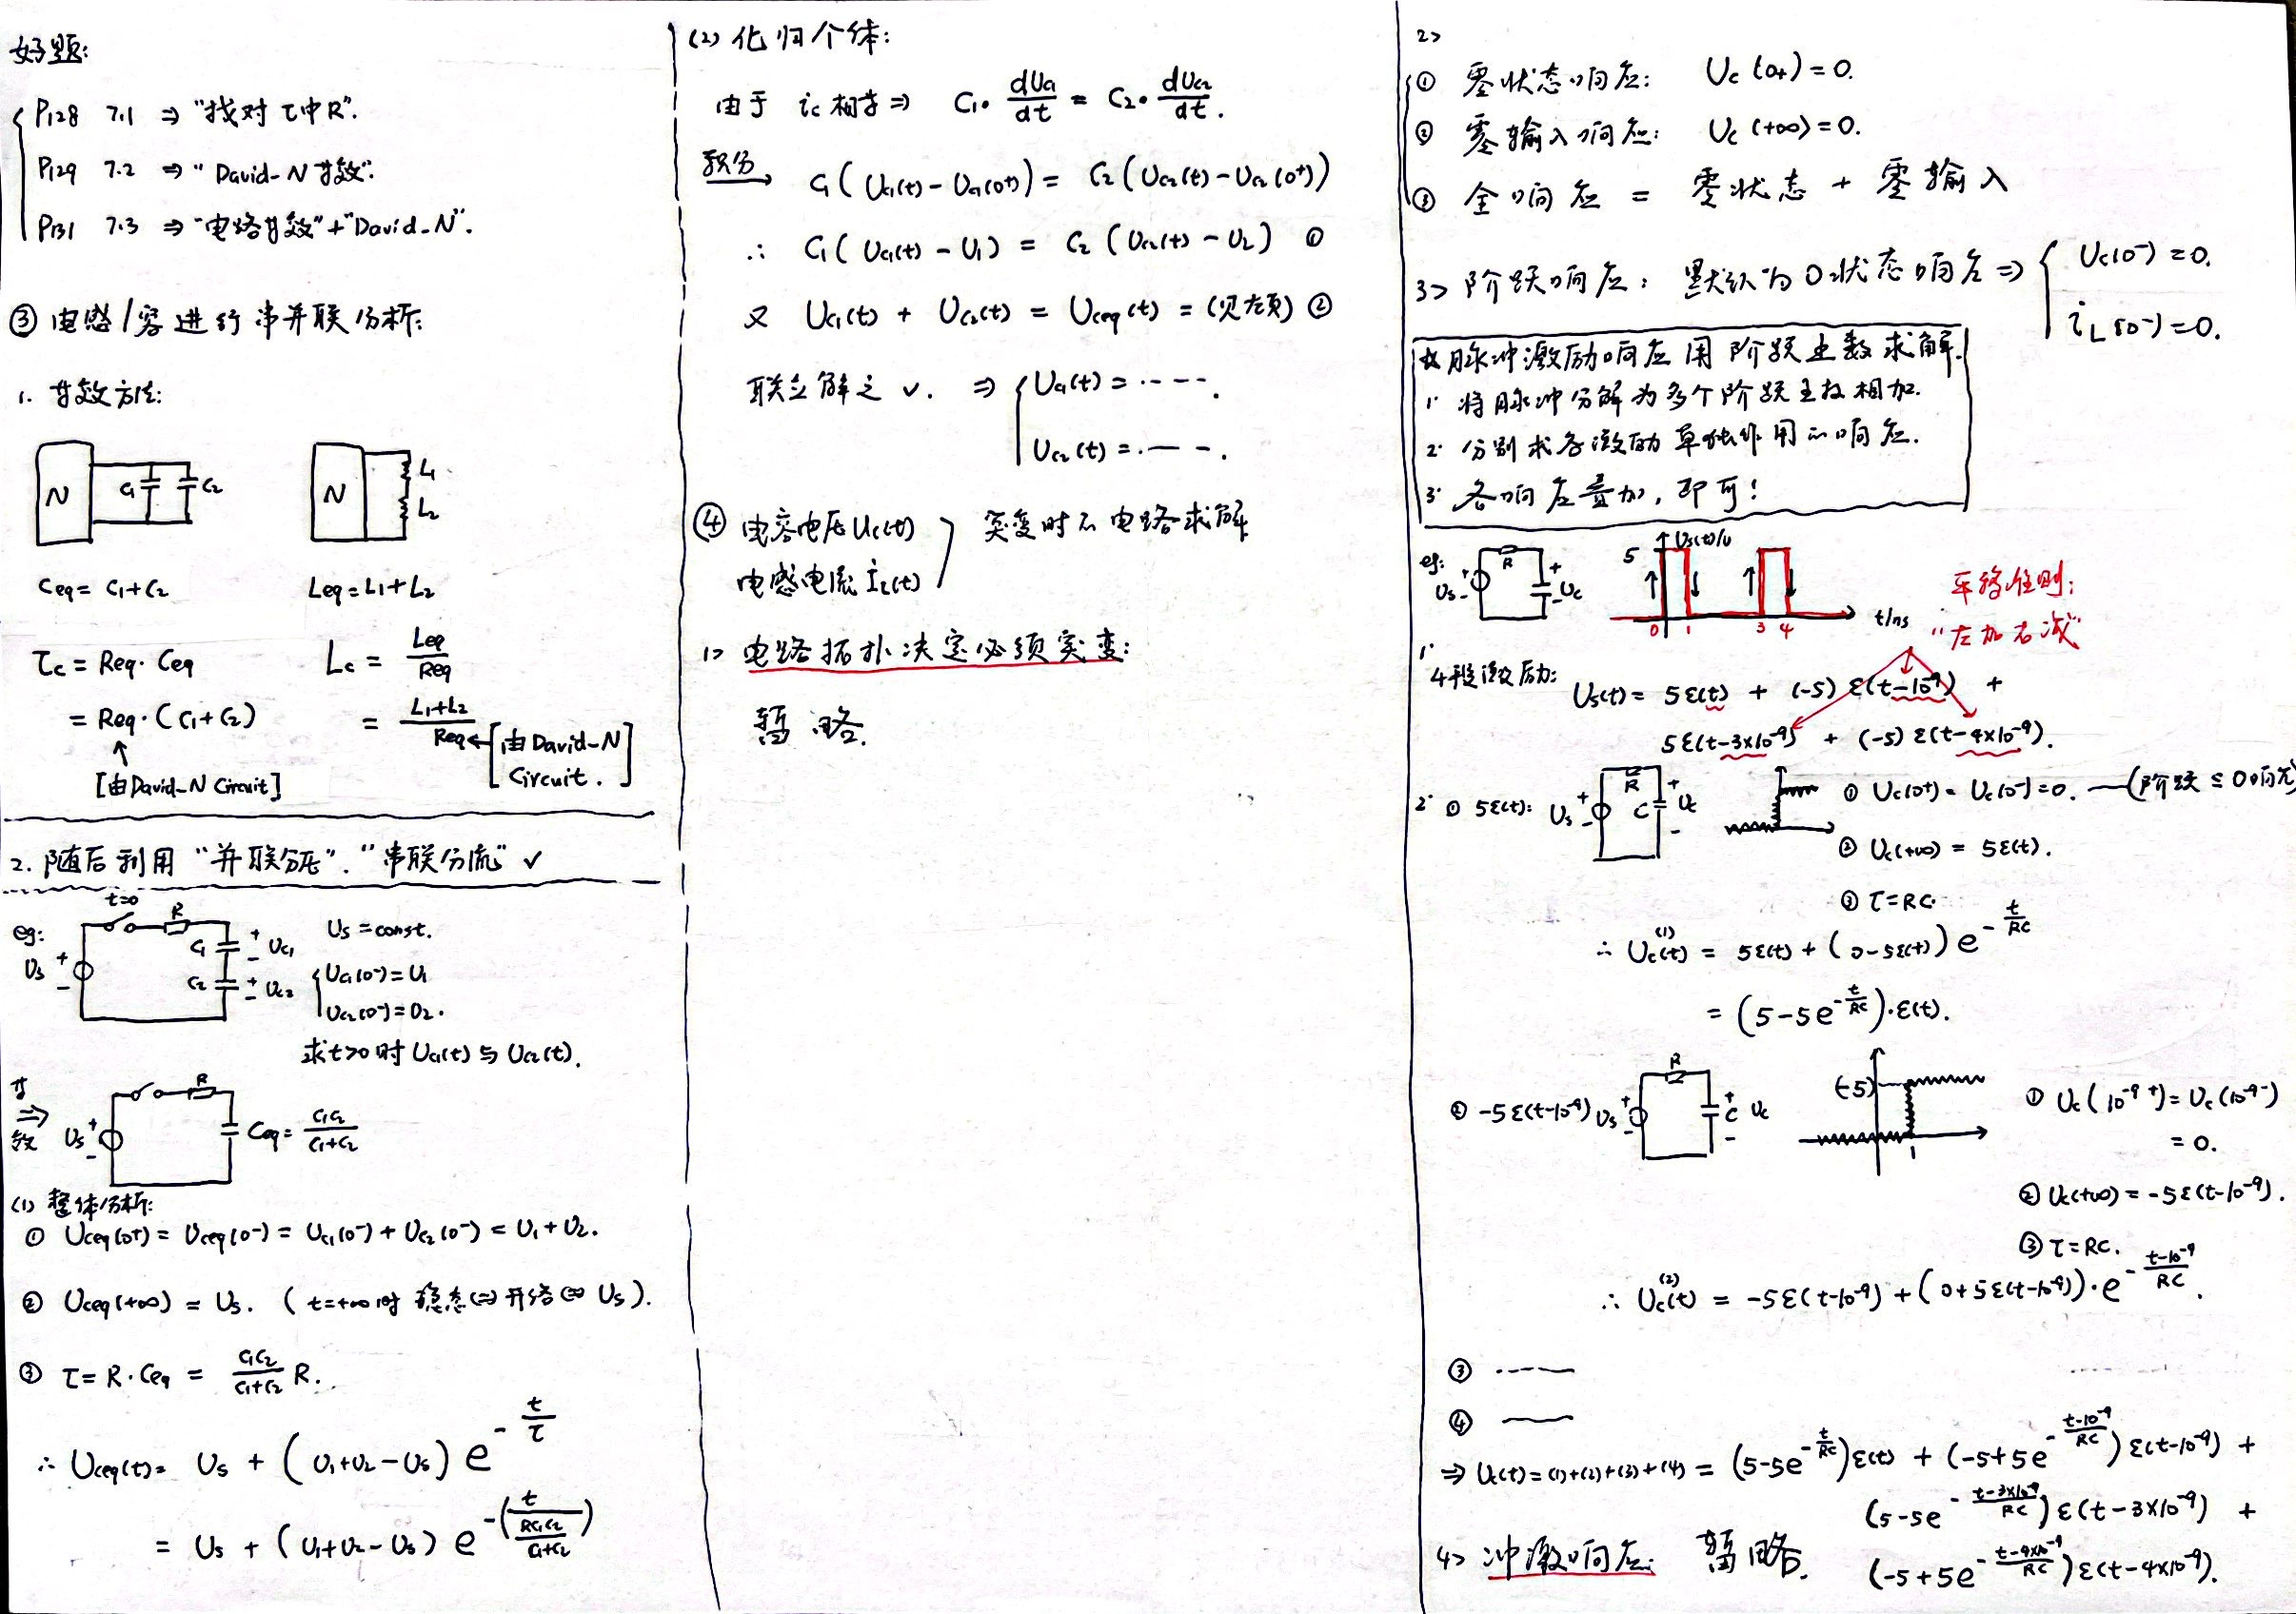 好题:
P128 7.1 ⇒ "找对 τ中R".
P129 7.2 ⇒ "David-N 等效".
P131 7.3 ⇒ "电路等效"+"David-N".
③ 电感/容进行串并联分析:
1. 等效方法:
N C1 C2
N L1 L2
Ceq = C1+C2
Leq = L1+L2
τc = Req·Ceq
= Req·(C1+C2)
↑
[由David-N Circuit]
Lc = Leq/Req
= (L1+L2)/Req ← [由David-N Circuit.]
2. 随后利用 "并联分压". "串联分流" ✓
eg: t=0 R
Us + - C1 + - Uc1
C2 + - Uc2
Us = const.
Uc1(0-) = U1
Uc2(0-) = U2.
求t>0时 Uc1(t) 与 Uc2(t).
等效 ⇒ Us + - R Ceq = C1C2/(C1+C2)
(1) 整体分析:
① Uceq(0+) = Uceq(0-) = Uc1(0-) + Uc2(0-) = U1 + U2.
② Uceq(+∞) = Us. ( t=+∞时 稳态 ⇔ 开路 ⇔ Us ).
③ τ = R·Ceq = C1C2/(C1+C2) R.
∴ Uceq(t) = Us + (U1+U2-Us) e^(-t/τ)
= Us + (U1+U2-Us) e^(-(t/(RC1C2/(C1+C2))))
(2) 化归个体:
由于 ic 相等 ⇒ C1·dUc1/dt = C2·dUc2/dt.
积分→ C1(Uc1(t)-Uc1(0+)) = C2(Uc2(t)-Uc2(0+))
∴ C1(Uc1(t)-U1) = C2(Uc2(t)-U2) ①
又 Uc1(t) + Uc2(t) = Uceq(t) = (见左页) ②
联立解之 ✓. ⇒ { Uc1(t) = ----.
Uc2(t) = .---.
④ 电容电压Uc(t)
电感电流 iL(t)
突变时的电路求解
1> 电路拓扑决定必须突变:
暂略.
2>
① 零状态响应: Uc(0+) = 0.
② 零输入响应: Uc(+∞) = 0.
③ 全响应 = 零状态 + 零输入
3> 阶跃响应: 默认为0状态响应 ⇒ { Uc(0-) = 0.
iL(0-) = 0.
脉冲激励响应用阶跃函数求解.
1. 将脉冲分解为多个阶跃函数相加.
2. 分别求各激励单独作用的响应.
3. 各响应叠加, 即可!
eg: Us + - R + - Uc
Us(t)/v
5
0 1 3 4 t/ns
平移准则:
"左加右减"
1.
4段激励: Us(t) = 5ε(t) + (-5)ε(t-10^-9) +
5ε(t-3×10^-9) + (-5)ε(t-4×10^-9).
2. ① 5ε(t): Us + - R C + - Uc
① Uc(0+) = Uc(0-) = 0.
② Uc(+∞) = 5ε(t).
③ τ=RC.
∴ Uc^(1)(t) = 5ε(t) + (0-5ε(t)) e^(-t/RC)
= (5-5e^(-t/RC))·ε(t).
② -5ε(t-10^-9) Us + - R + C - Uc
(-5) 1
① Uc(10^-9 +) = Uc(10^-9 -)
= 0.
② Uc(+∞) = -5ε(t-10^-9).
③ τ=RC.
∴ Uc^(2)(t) = -5ε(t-10^-9) + (0+5ε(t-10^-9))·e^(-(t-10^-9)/RC).
③ ----
④ ----
⇒ Uc(t) = (1)+(2)+(3)+(4) = (5-5e^(-t/RC))ε(t) + (-5+5e^(-(t-10^-9)/RC))ε(t-10^-9) +
(5-5e^(-(t-3×10^-9)/RC))ε(t-3×10^-9) +
(-5+5e^(-(t-4×10^-9)/RC))ε(t-4×10^-9).
4> 冲激响应: 暂略.